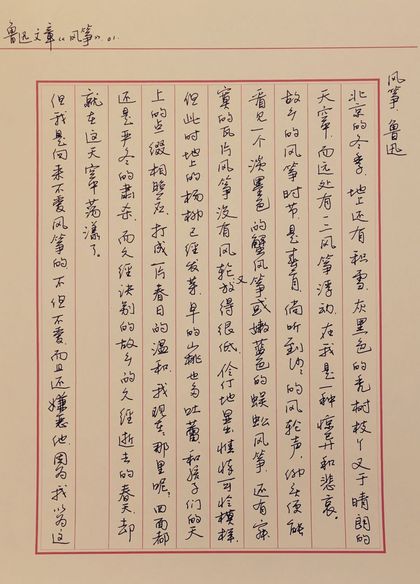 鲁迅文章《风筝》01.
风筝 鲁迅
北京的冬季.地上还有积雪.灰黑色的秃树枝丫叉于晴朗的
天空中.而远处有一二风筝浮动.在我是一种惊异和悲哀。
故乡的风筝时节.是春二月.倘听到沙々的风轮声.仰头便能
看见一个淡墨色的蟹风筝或嫩蓝色的蜈蚣风筝.还有寂
寞的瓦片风筝没有风轮.又放得很低.伶仃地显出憔悴可怜模样.
但此时地上的杨柳已经发芽.早的山桃也多吐蕾.和孩子们的天
上的点缀相照应.打成一片春日的温和.我现在在那里呢?四面都
还是严冬的肃杀.而久经诀别的故乡的久经逝去的春天.却
就在这天空中荡漾了。
但我是向来不爱风筝的.不但不爱.而且还嫌恶他.因为我以为这